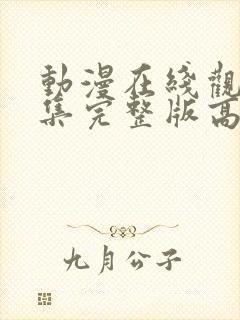 動漫在綫觀
集完整版高
九月公子